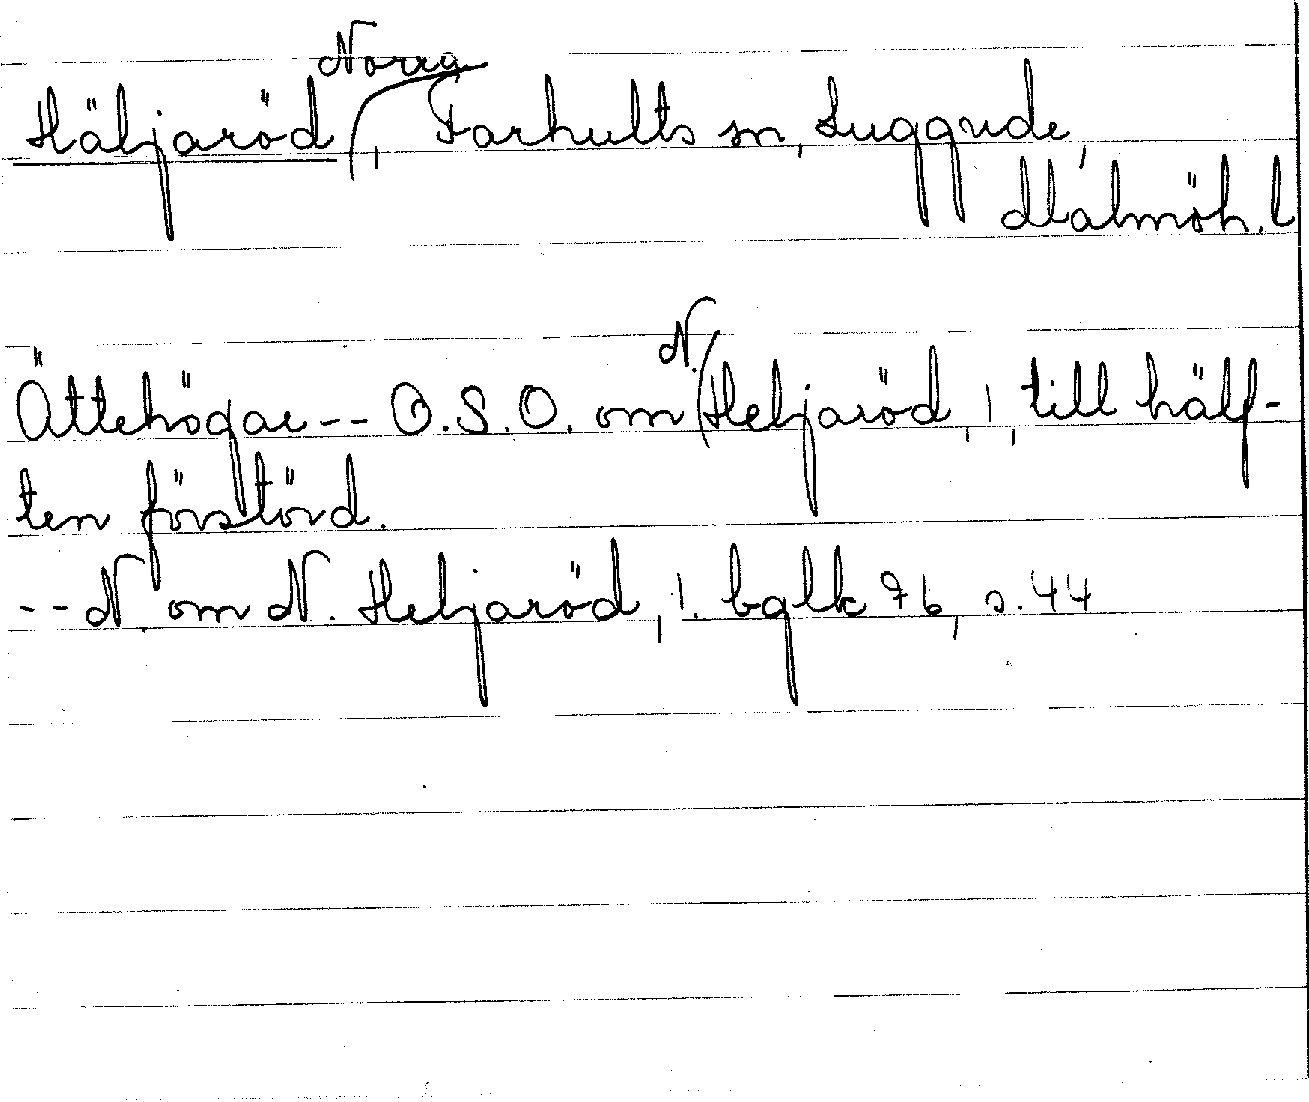 Norra
Häljaröd, Farhults sn, Luggude,
Malmöh. l
N.
Ättehögar -- O.S.O. om Heljaröd, 1, till hälf-
ten förstörd.
-- N. om N. Heljaröd, 1. bglk 76, s. 44